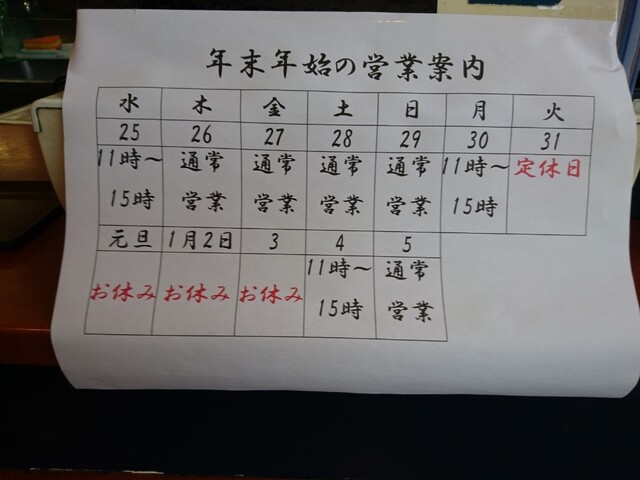 年末年始の営業案内
水 木 金 土 日 月 火
25 26 27 28 29 30 31
11時～ 通常 通常 通常 通常 11時～ 定休日
15時 営業 営業 営業 営業 15時
元旦 1月2日 3 4 5
お休み お休み お休み 11時～ 通常
15時 営業